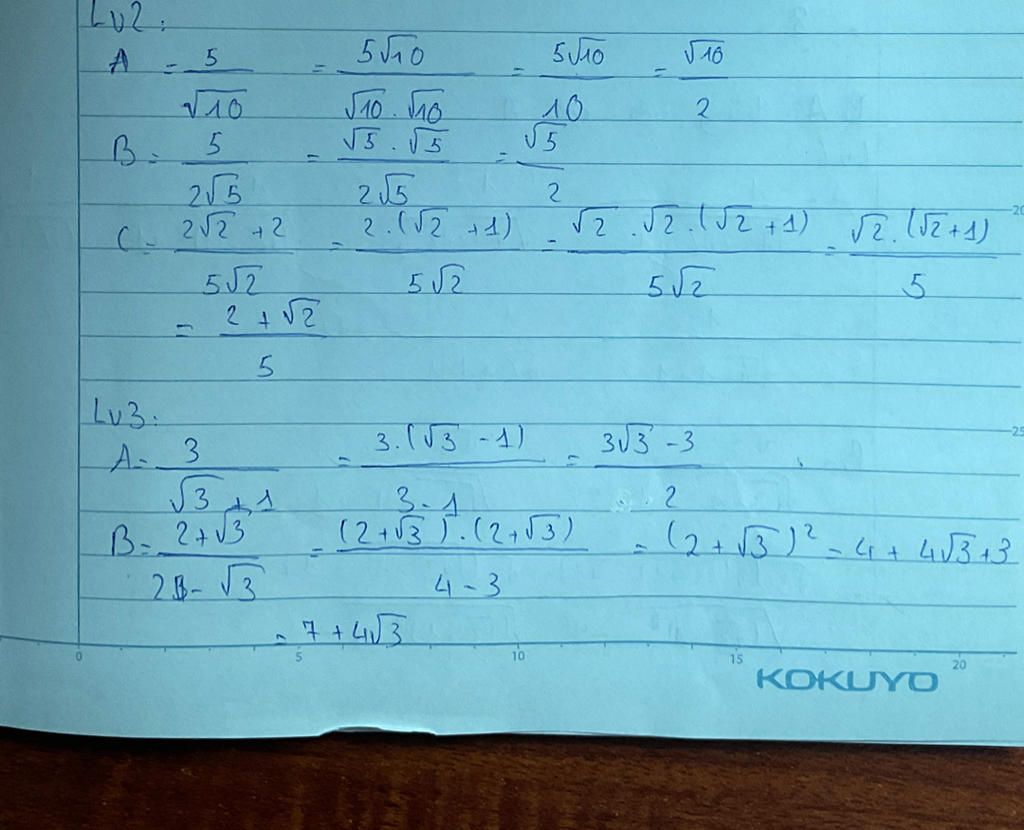 Lv2:
A = 5/√10 = 5√10/(√10 . √10) = 5√10/10 = √10/2
B = 5/(2√5) = (√5 . √5)/(2√5) = √5/2
C = (2√2 + 2)/(5√2) = (2.(√2 + 1))/(5√2) = (√2 . √2 . (√2 + 1))/(5√2) = (√2 . (√2 + 1))/5
= (2 + √2)/5
Lv3:
A = 3/(√3 + 1) = (3.(√3 - 1))/(3 - 1) = (3√3 - 3)/2
B = (2 + √3)/(2 - √3) = ((2 + √3) . (2 + √3))/(4 - 3) = (2 + √3)² = 4 + 4√3 + 3
= 7 + 4√3
0 5 10 15 20
20
25
KOKUYO